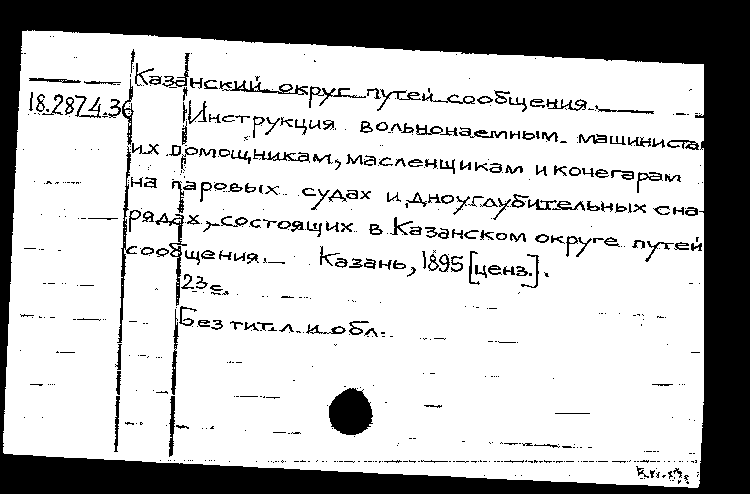 Казанский округ путей сообщения.
18.287.4.36
Инструкция вольнонаемным машиниста
их помощникам, масленщикам и кочегарам
на паровых судах и дноуглубительных сна-
рядах, состоящих в Казанском округе путей
сообщения. Казань, 1895 [ценз.].
23с.
Без тит.л. и обл.